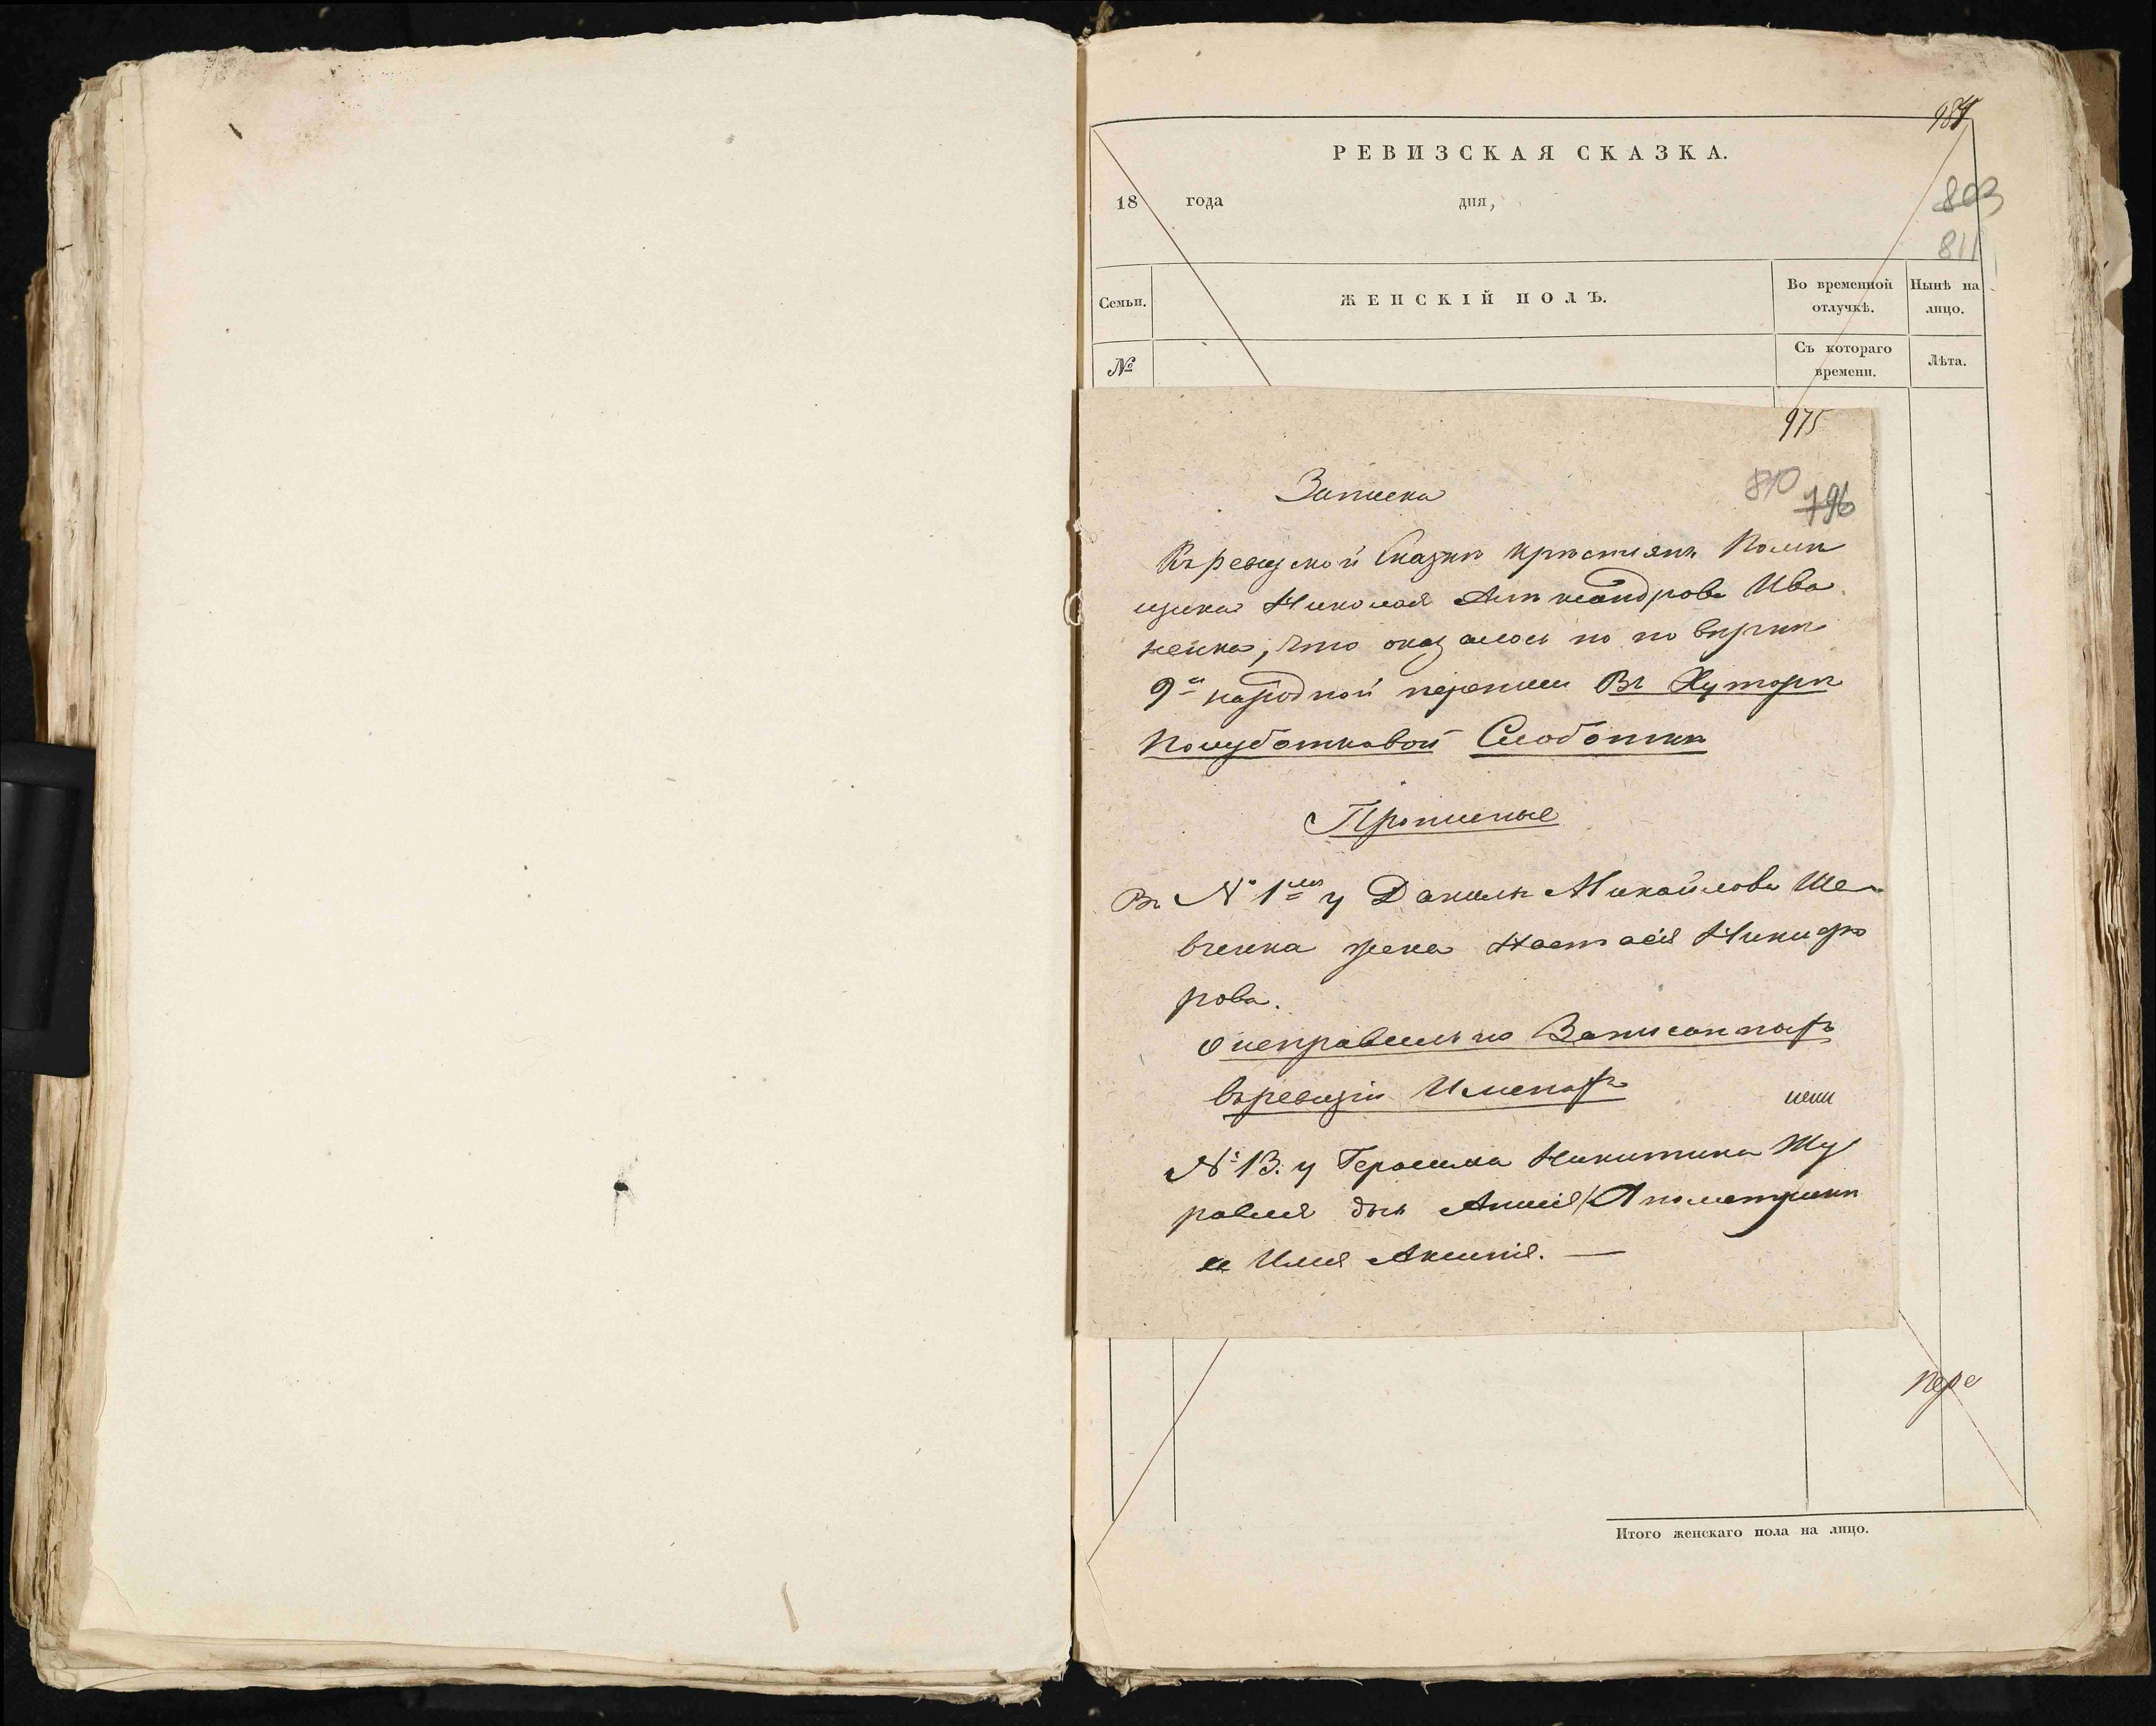 984
РЕВИЗСКАЯ СКАЗКА.
18 года дня,
803
811
Семьи.
ЖЕНСКІЙ ПОЛЪ.
Во временной отлучкѣ.
Нынѣ на лицо.
№
Съ котораго времени.
Лѣта.
975
810
796
Записка
Къ ревизской Сказкѣ крѣстиянъ Помѣ
щика Николая Алѣксандрова Ива
ненка, что оказалось по повѣркѣ
9й народной переписи Въ Хуторѣ
Полуботковой Слободкѣ
Прописные
Въ № 1мъ у Данилы Михайлова Ше
вченка жена Настасія Никифо
рова.
О неправильно Записанныхъ
въ ревизіи Именахъ
№ 13. у Герасима Никитина Жу
равля дочь Анися / А по метрикѣ
ее Имя Аксинія. —
пере
Итого женскаго пола на лицо.